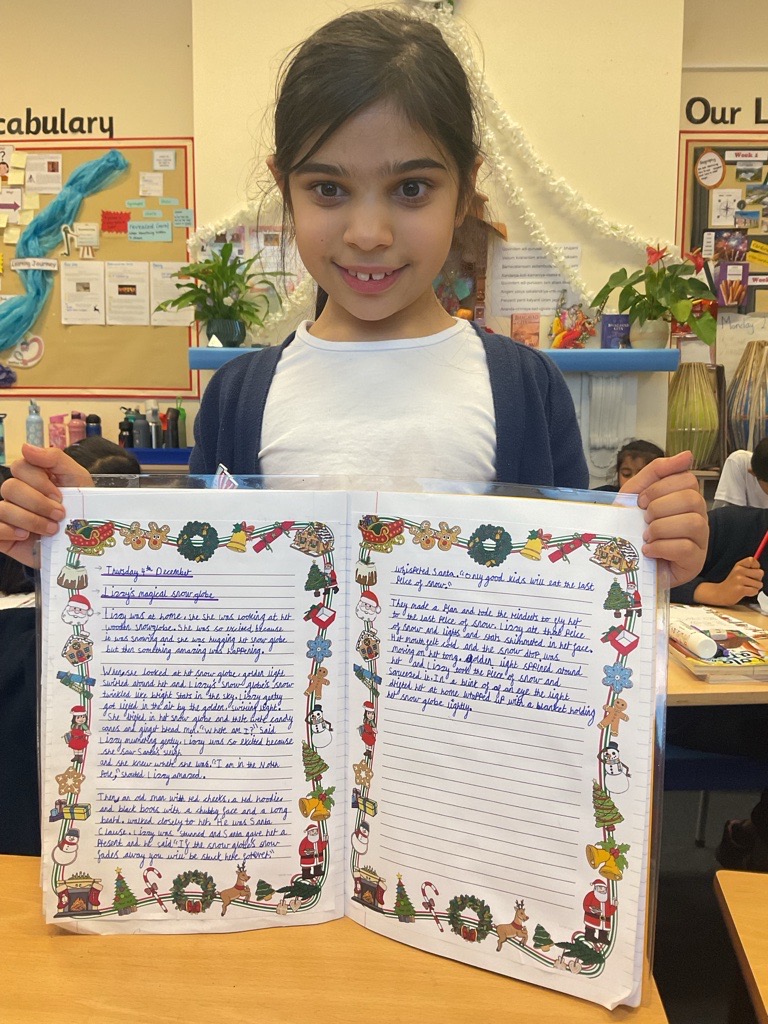 cabulary
Our L
Learning Journey
Week 1
Monday 2
Thursday 4th December
Lizzy's magical snow globe
Lizzy was at home. She she was looking at her
wooden snowglobe. She was so excited because
it was snowing and she was hugging her snow globe
but then something amazing was happening.
When she looked at her snow globe golden light
swirled around her and Lizzy's snow globe's snow
twinkled like bright stars in the sky. Lizzy gently
got lifted in the air by the golden swirling light.
She in her snow globe and there were candy
canes and ginger bread men. "Where am I?" Said
Lizzy murmering gently. Lizzy was so excited because
she saw Santa's sleigh
and she knew where she was. "I am in the North
Pole," shouted Lizzy amazed.
Then an old man with red cheeks, a red hoodie
and black boots with a chubby face and a long
beard. walked closely to her. He was Santa
Clause. Lizzy was stunned and Santa gave her a
Present and he said "If the snow globe's snow
fades away you will be stuck here forever!"
whispered Santa. "Only good kids will eat the last
Piece of snow."
They made a plan and rode the reindeers to fly her
to the last piece of snow. Lizzy ate the piece
of snow and lights and stars shimmered in her face.
Her mouth felt cold and the snow drop was
moving on her tong. golden light spiraled around
her and Lizzy took the piece of snow and
squeezed it. In a blink of an eye the light
her at home wrapped up with a blanket holding
her snow globe tightly.